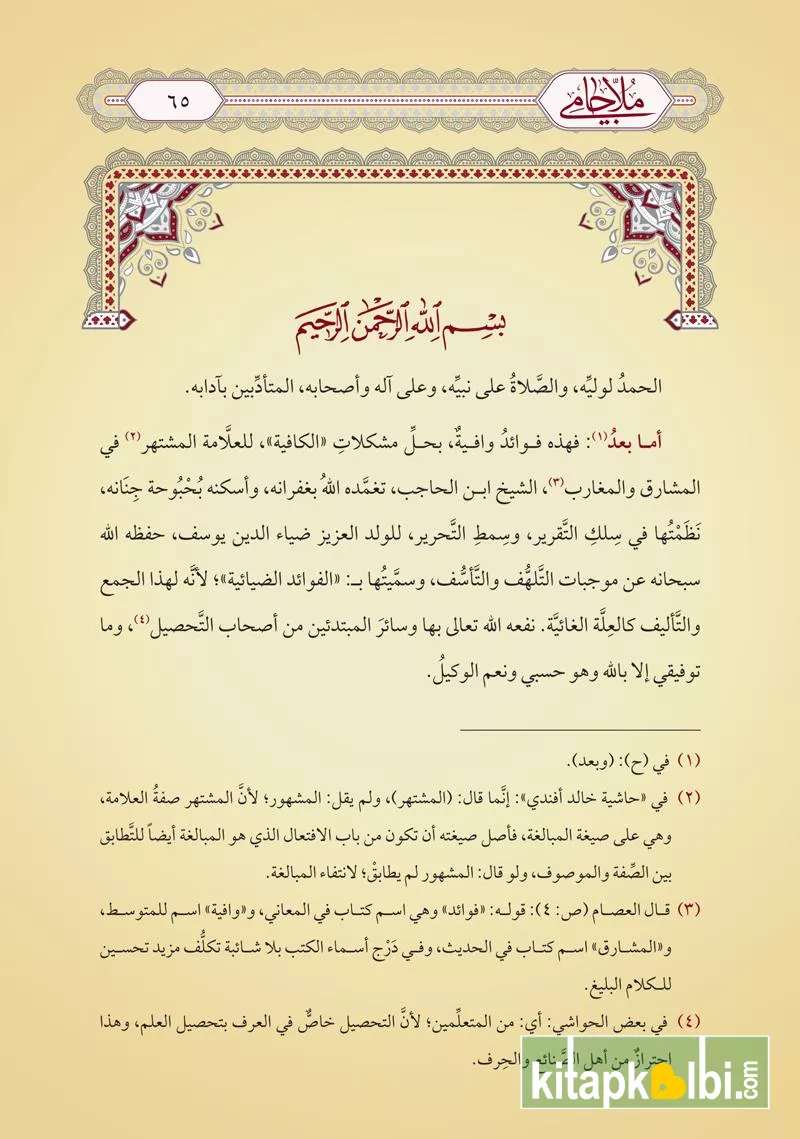 مُلّا جامي
٦٥
بِسْمِ ٱللَّهِ ٱلرَّحْمَنِ ٱلرَّحِيمِ
الحمدُ لوليِّه، والصَّلاةُ على نبيِّه، وعلى آله وأصحابه، المتأدِّبين بآدابه.
أما بعدُ(١): فهذه فوائدُ وافيةٌ، بحلِّ مشكلاتِ «الكافية»، للعلَّامة المشتهر(٢) في
المشارق والمغارب(٣)، الشيخ ابن الحاجب، تغمَّده اللهُ بغفرانه، وأسكنه بُحْبُوحة جِنَانه،
نَظَمْتُها في سِلكِ التَّقرير، وسِمطِ التَّحرير، للولد العزيز ضياء الدين يوسف، حفظه الله
سبحانه عن موجبات التَّلهُّف والتَّأسُّف، وسمَّيتُها بـ: «الفوائد الضيائية»؛ لأنَّه لهذا الجمع
والتَّأليف كالعِلَّة الغائيَّة. نفعه الله تعالى بها وسائرَ المبتدئين من أصحاب التَّحصيل(٤)، وما
توفيقي إلا بالله وهو حسبي ونعم الوكيلُ.
(١) في (ح): (وبعد).
(٢) في «حاشية خالد أفندي»: إنَّما قال: (المشتهر)، ولم يقل: المشهور؛ لأنَّ المشتهر صفةُ العلامة،
وهي على صيغة المبالغة، فأصل صيغته أن تكون من باب الافتعال الذي هو المبالغة أيضاً للتَّطابق
بين الصِّفة والموصوف، ولو قال: المشهور لم يطابقْ؛ لانتفاء المبالغة.
(٣) قال العصام (ص: ٤): قوله: «فوائد» وهي اسم كتاب في المعاني، و«وافية» اسم للمتوسط،
و«المشارق» اسم كتاب في الحديث، وفي دَرْج أسماء الكتب بلا شائبة تكلُّف مزيد تحسين
للكلام البليغ.
(٤) في بعض الحواشي: أي: من المتعلِّمين؛ لأنَّ التحصيل خاصٌّ في العرف بتحصيل العلم، وهذا
احترازٌ من أهل الصَّنائع والحِرف.
kitapkalbi.com